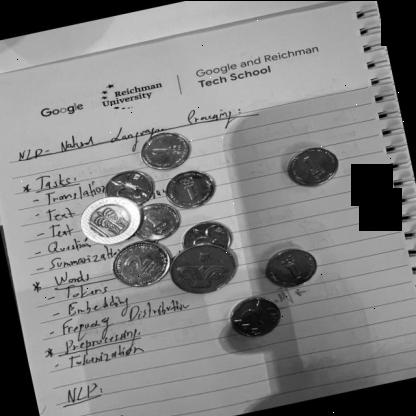 Google
Reichman University
Google and Reichman
Tech School
NLP - Natural Language Processing:
* Tasks:
- Translation
- Text
- Text
- Question
- Summarization
* Words
- Tokens
- Embedding
- Frequency Distribution
* Preprocessing:
- Tokenization
NLP: